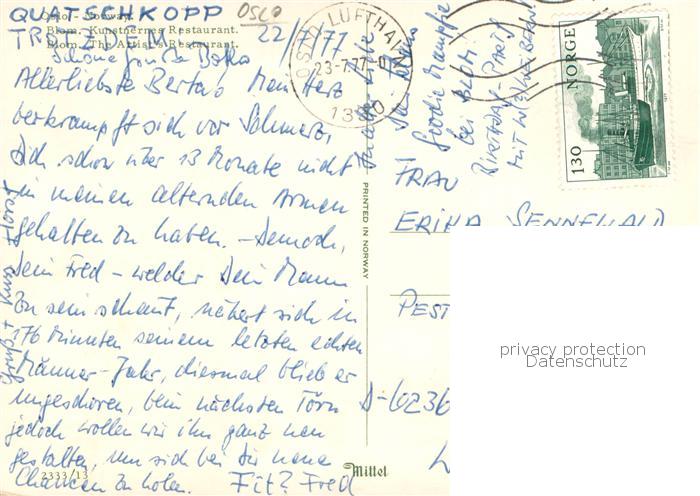 QUATSCHKOPP
TROTZDEM
OSLO
22/7/77
Oslo - Norway.
Blom. Kunstnernes Restaurant.
Blom. The Artist's Restaurant.
Allerliebste Mein Herz
verkrampft sich vor Schmerz,
Dich schon über 13 Monate nicht
in meinen alternden Armen
gehalten zu haben. – Dennoch,
Dein Fred – welcher Dein Mann
zu sein scheint, nähert sich in
176 Minuten seinem letzten echten
Männer-Jahr, diesmal blieb er
ungeschoren, beim nächsten Törn
jedoch wollen wir ihn ganz neu
gestalten, um sich bei Dir neue
Chancen zu holen. Fit? Fred
2333/13
Gruß + Kuss Horst
OSLO LUFTHAVN
23-7.77
1330
PRINTED IN NORWAY
Mittet
bei
NORGE
130
FRAU
ERIKA SENNEWALD
PEST
D-6236
privacy protection
Datenschutz